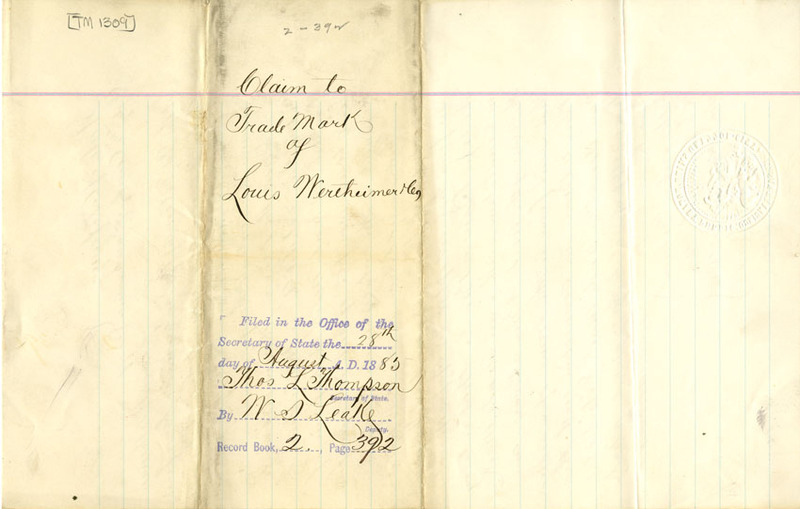 [TM 1309]
2-392
Claim to
Trade Mark
of
Louis Wertheimer & Co
Filed in the Office of the
Secretary of State the 28th
day of August A. D. 1883
Thos L Thompson
Secretary of State.
By W J Leake
Deputy.
Record Book, 2, Page 392